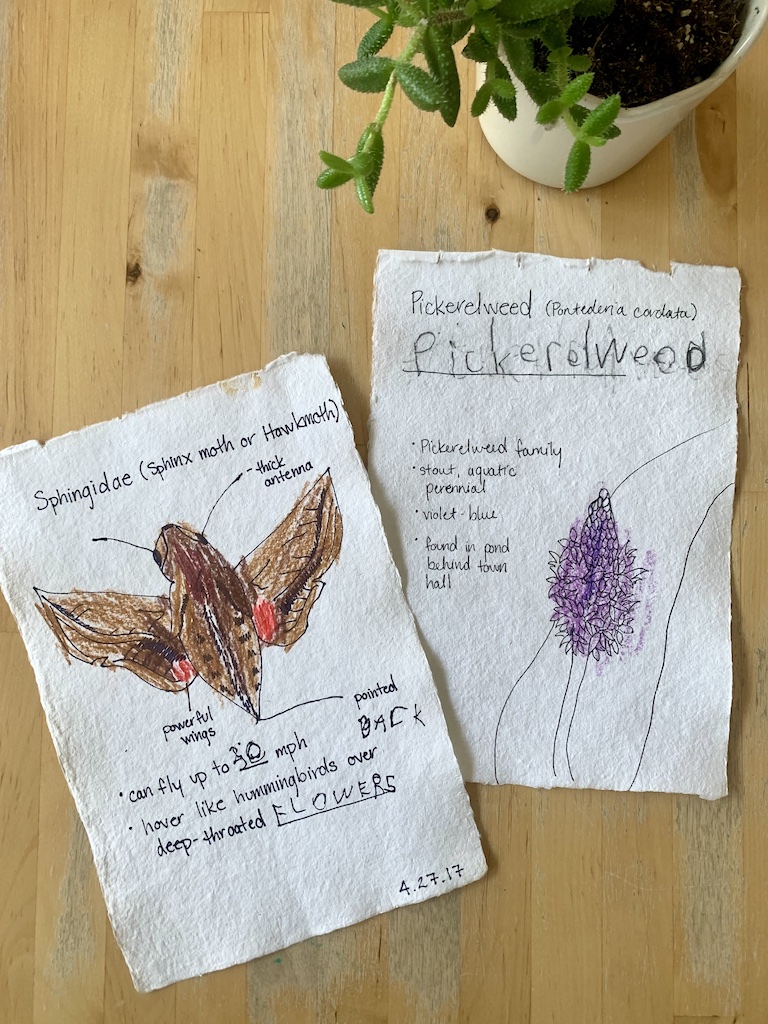 Sphingidae (Sphinx moth or Hawkmoth)
-thick
antenna
powerful
wings
pointed
BACK
• can fly up to 30 mph
• hover like hummingbirds over
deep-throated FLOWERS
4.27.17
Pickerelweed (Pontederia cordata)
Pickerelweed
• Pickerelweed family
• stout, aquatic
perennial
• violet-blue
• found in pond
behind town
hall